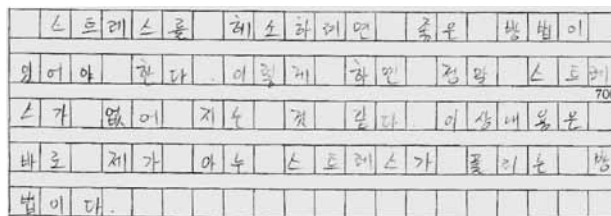 스트레스를 해소하려면 좋은 방법이
있어야 한다. 이렇게 하면 정말 스트레
700
스가 없어 지는 것 같다. 이상내용은
바로 제가 아누 스트레스가 풀리는 방
법이다.